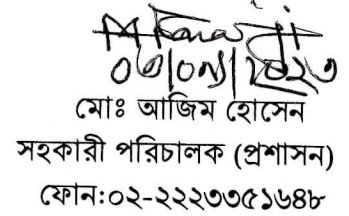 মোঃ আজিম হোসেন
সহকারী পরিচালক (প্রশাসন)
ফোন:০২-২২২৩৩৫১৬৪৮